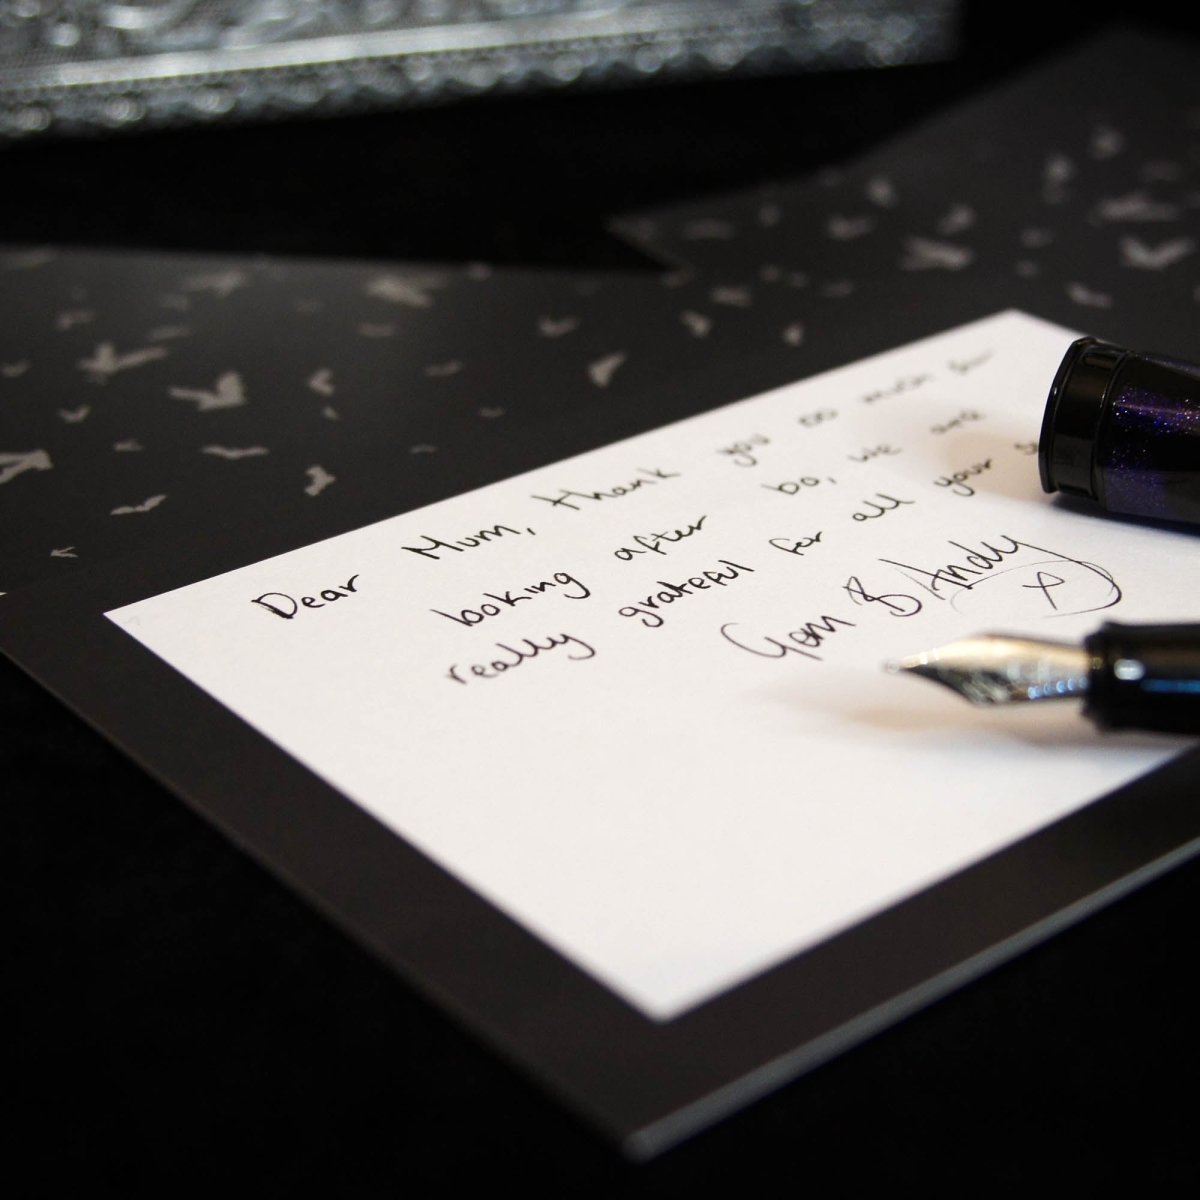 Dear Mum, thank you so much for
looking after bo, we are
really grateful for all your
Gem & Andy
x